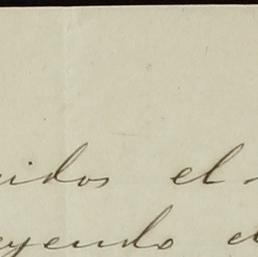 idos el
yendo